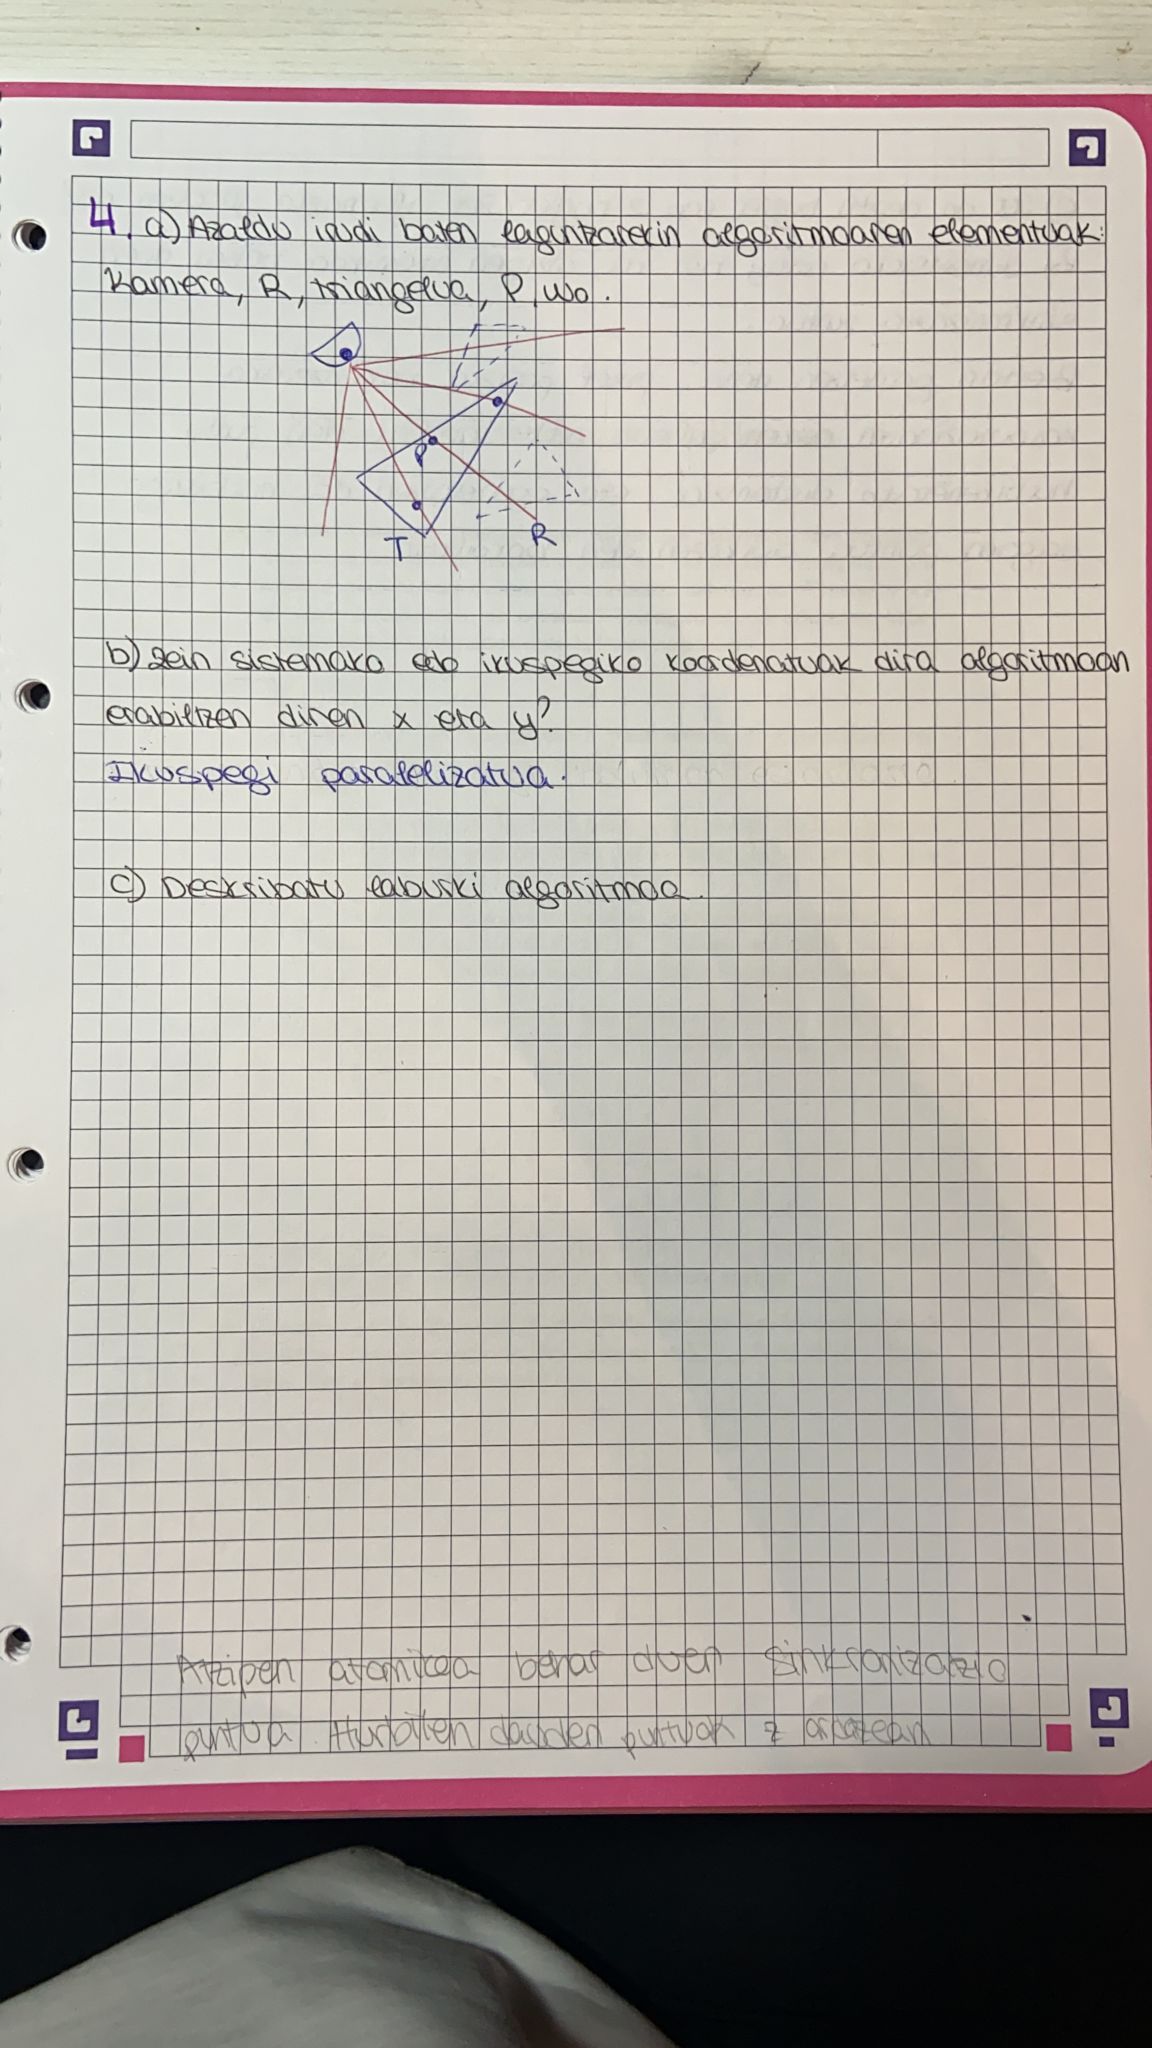 4. a) Azaldu irudi baten laguntzarekin algoritmoaren elementuak:
Kamera, R, triangelua, P, wo.
P
T
R
b) Zein sistemako edo ikuspegiko koordenatuak dira algoritmoan
erabiltzen diren x eta y?
Ikuspegi paralelizatua.
c) Deskribatu laburki algoritmoa.
Atzipen atomikoa behar duen sinkronizazio
puntua. Hurbilen dauden puntuak z ardatzean